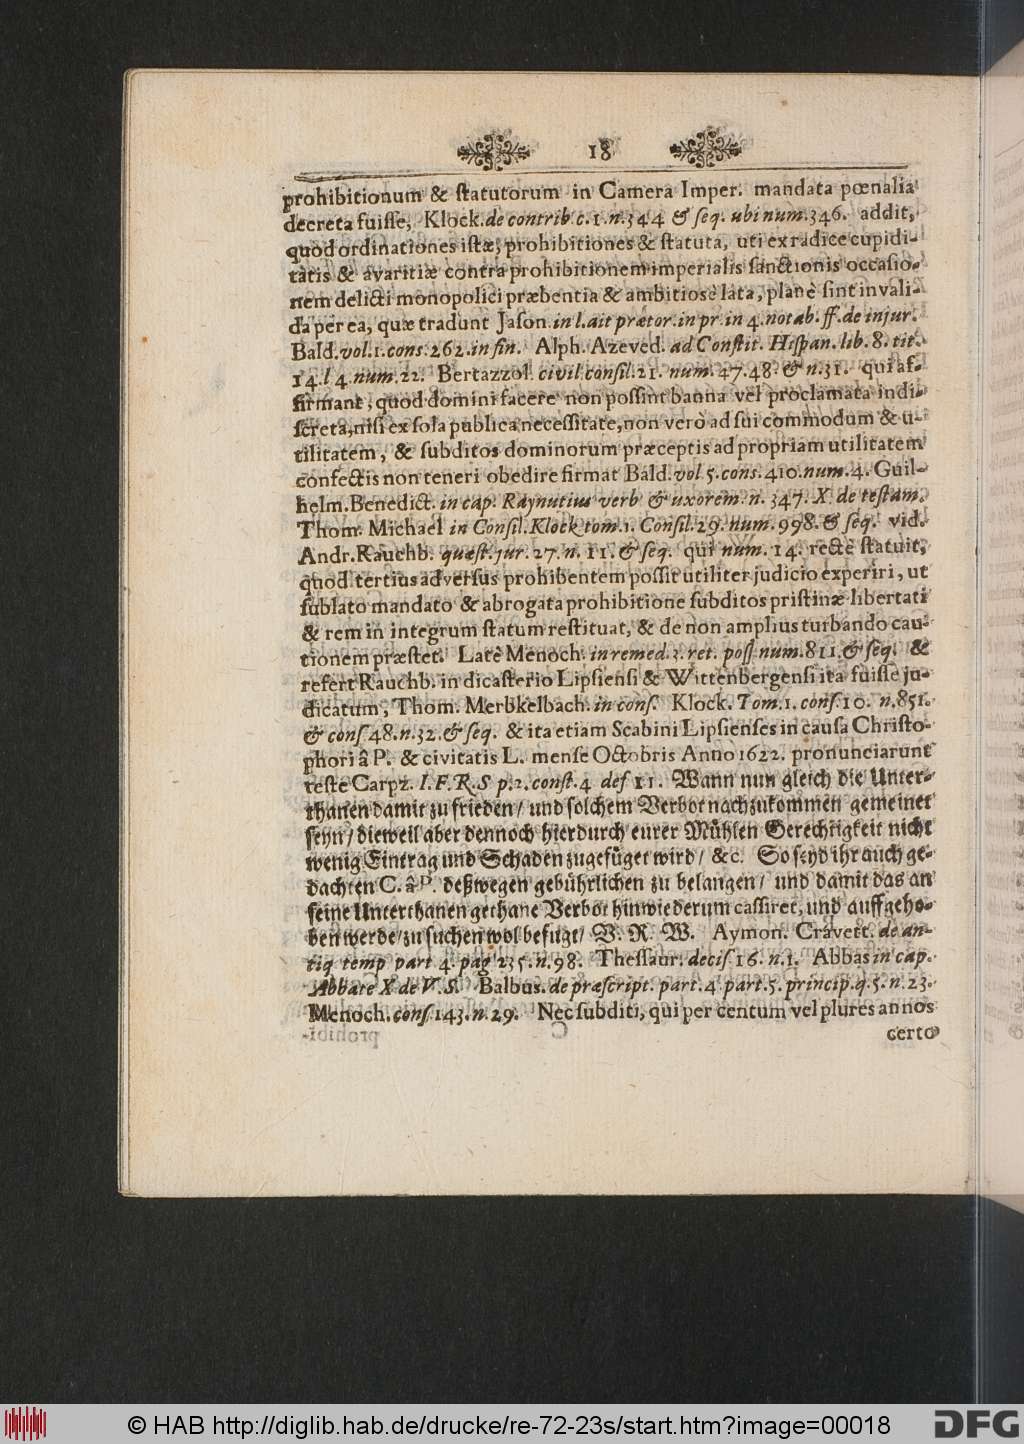 18
prohibitionum & statutorum in Camera Imper. mandata pœnalia
decreta fuisse, Klock. de contrib. c. 1. n. 344 & seq. ubi num. 346. addit,
quod ordinationes istæ, prohibitiones & statuta, uti ex radice cupidi-
tatis & avaritiæ contra prohibitionem imperialis sanctionis occasio-
nem delicti monopolici præbentia & ambitiosè lata, planè sint invali-
da per ea, quæ tradunt Jason. in l. ait prætor. in pr. in 4. notab. ff. de injur.
Bald. vol. 1. cons. 262. in fin. Alph. Azeved. ad Constit. Hispan. lib. 8. tit.
14. l 4. num. 22. Bertazzol. civil consil. 21. num. 47. 48. & n. 31. qui af-
firmant, quod domini facere non possint banna vel proclamata indi-
screta, nisi ex sola publica necessitate, non verò ad sui commodum & u-
tilitatem, & subditos dominorum præceptis ad propriam utilitatem
confectis non teneri obedire firmat Bald. vol 5. cons. 410. num. 4. Guil-
helm. Benedict. in cap. Raynutius verb & uxorem. n. 347. X. de testam.
Thom. Michael in Consil. Klock tom. 1. Consil. 29. num. 998. & seq. vid.
Andr. Rauchb. quæst. jur. 27. n. 11. & seq. qui num. 14. rectè statuit,
quod tertius adversus prohibentem possit utiliter judicio experiri, ut
sublato mandato & abrogata prohibitione subditos pristinæ libertati
& rem in integrum statum restituat, & de non amplius turbando cau-
tionem præstet. Latè Menoch. in remed. 3. ret. poss num. 811. & seq. &
refert Rauchb. in dicasterio Lipsiensi & Wittenbergensi ita fuisse ju-
dicatum, Thom. Merbkelbach. in cons. Klock. Tom. 1. cons. 10. n. 851.
& cons 48. n. 32. & seq. & ita etiam Scabini Lipsienses in causa Christo-
phori â P. & civitatis L. mense Octobris Anno 1622. pronunciarunt
teste Carpz. I. F. R. S p. 2. const. 4 def 11. Wann nun gleich die Unter-
thanen damit zu frieden / und solchem Verbot nachzukommen gemeinet
seyn / dieweil aber dennoch hierdurch eurer Mühlen Gerechtigkeit nicht
wenig Eintrag und Schaden zugefüget wird / &c. So seyd ihr auch ge-
dachten C. â P. deßwegen gebührlichen zu belangen / und damit das an
seine Unterthanen gethane Verbot hinwiederum cassiret, und auffgeho-
ben werde / zu suchen wol befugt / V. R. W. Aymon. Cravett. de an-
tiq temp part 4. pag 235. n. 98. Thessaur. decis 16. n. 1. Abbas in cap.
Abbate X de V. S. Balbus. de præscript. part. 4 part. 5. princip. q. 5. n. 23.
Menoch. cons 143. n. 29. Nec subditi, qui per centum vel plures annos
certo
© HAB http://diglib.hab.de/drucke/re-72-23s/start.htm?image=00018
DFG